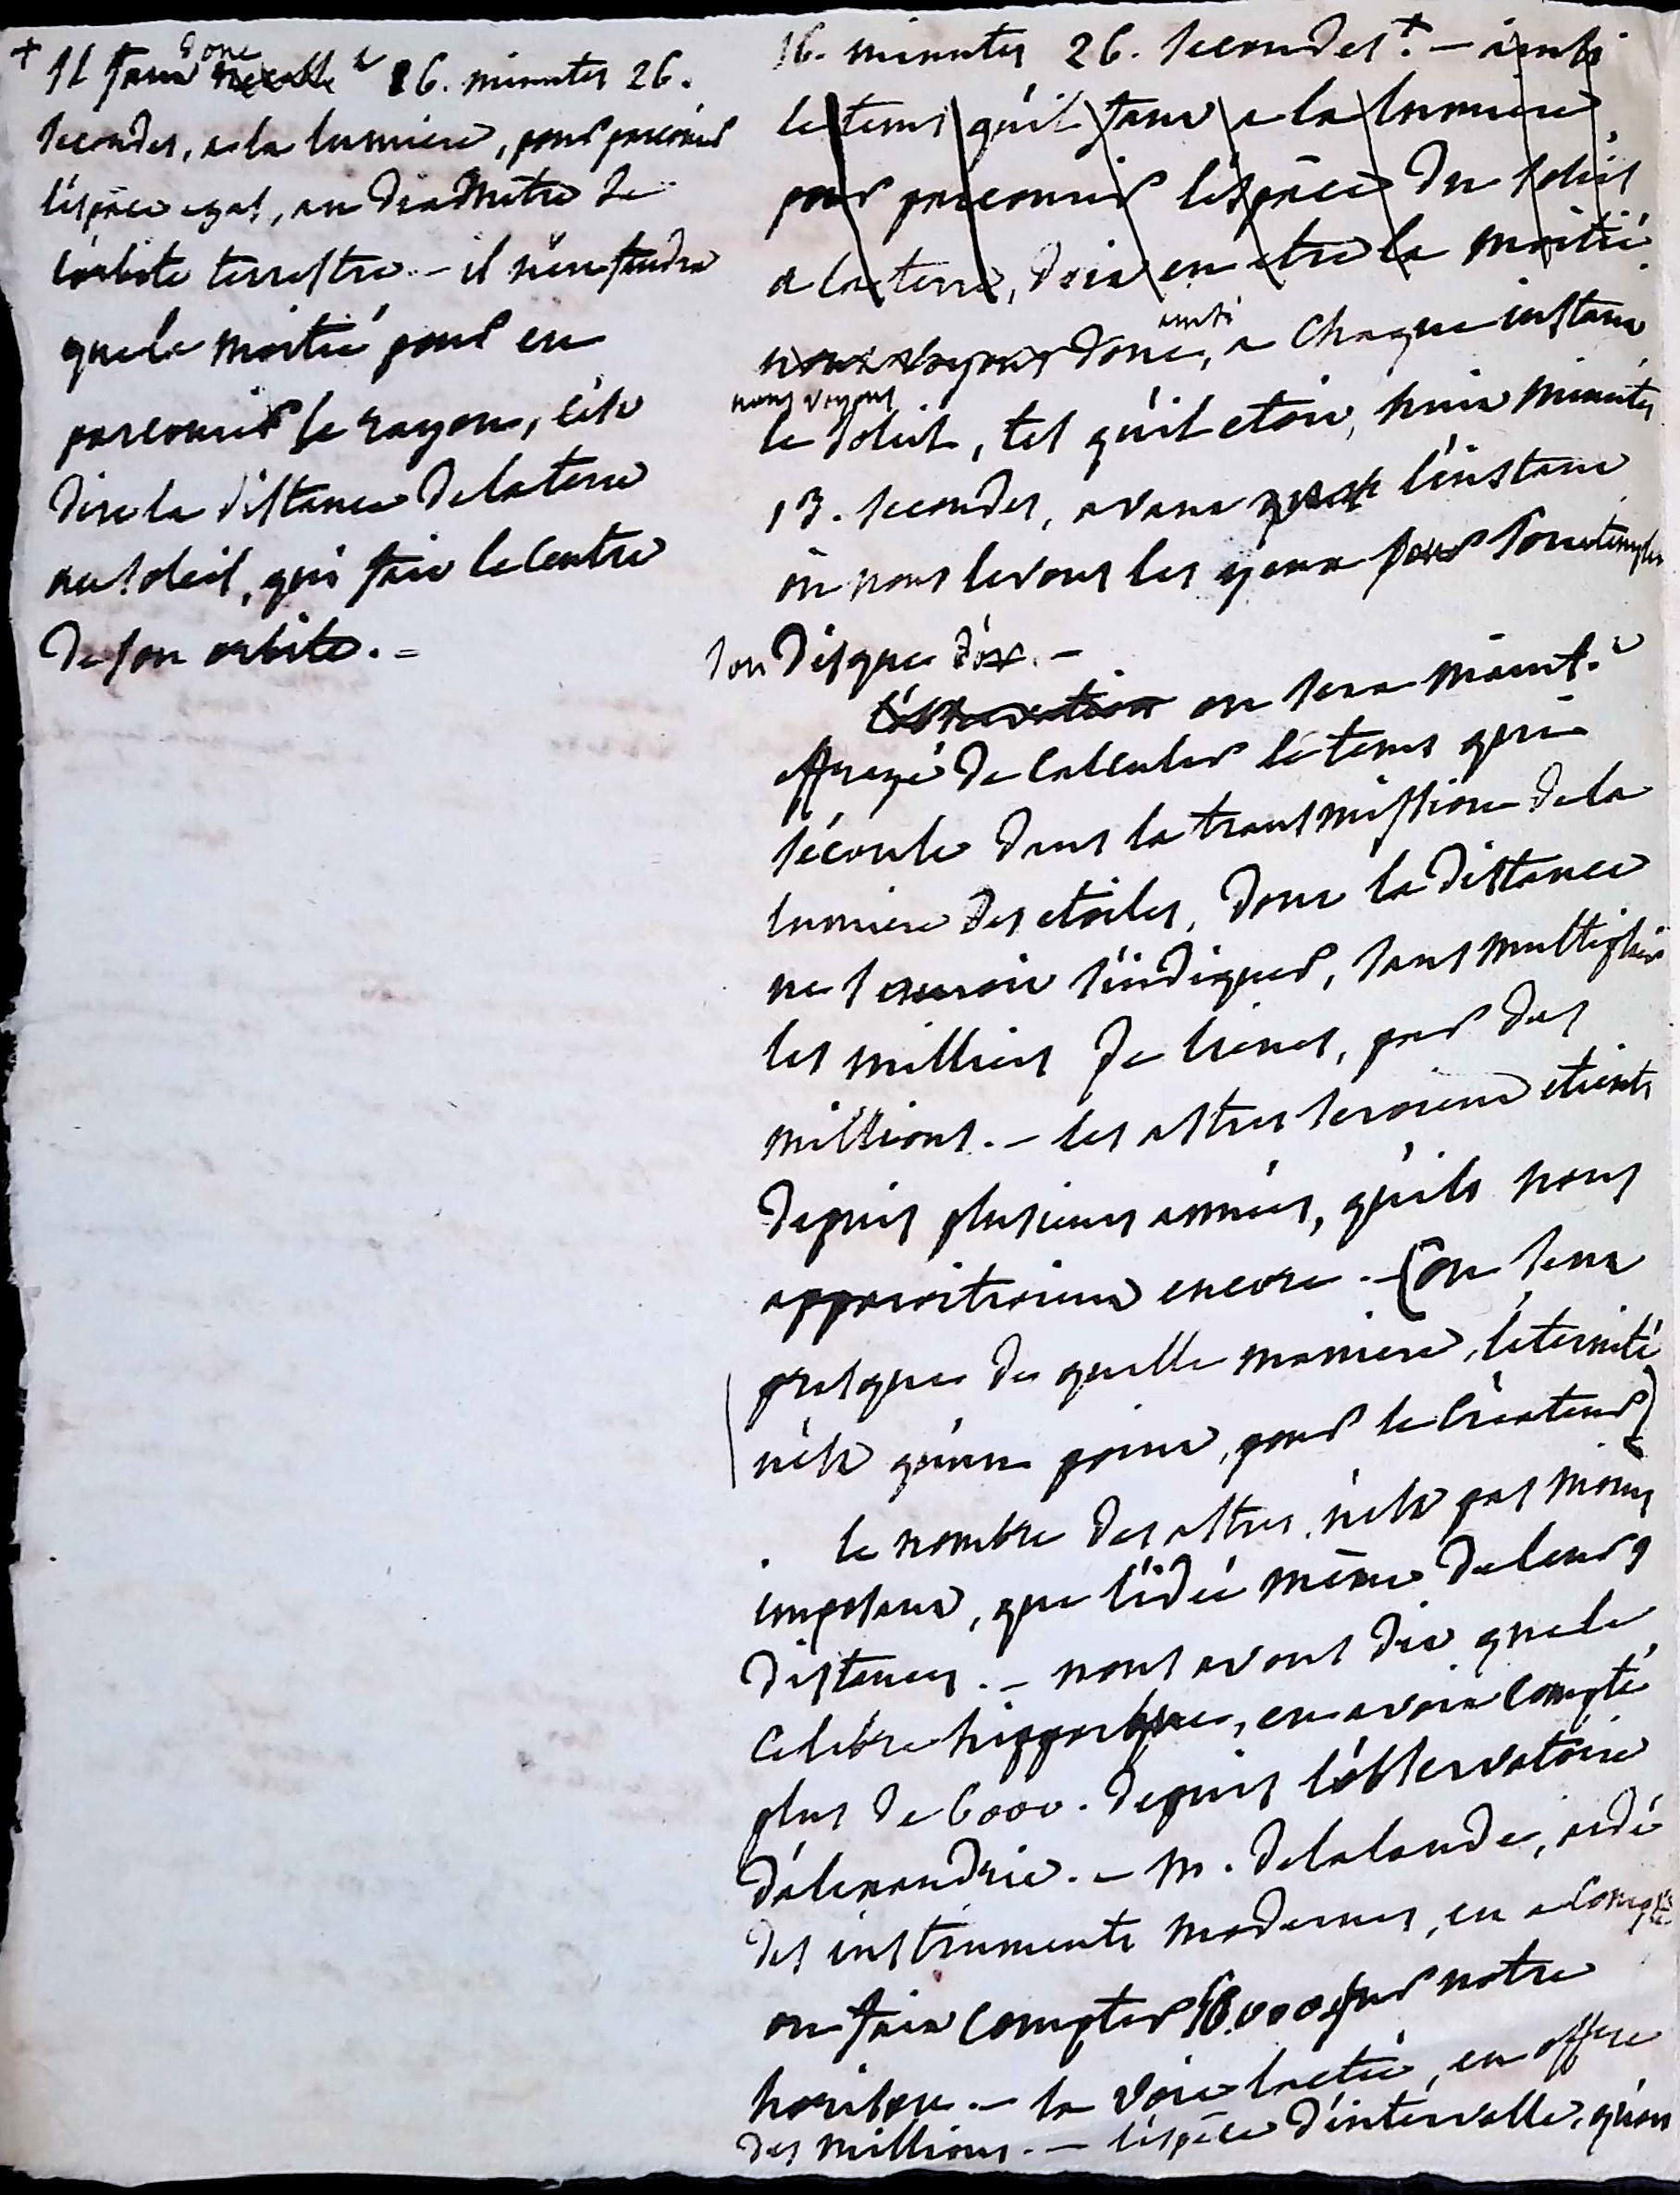 + Il faut donc 16. minutes 26.
secondes, a la lumiere, pour parcourir
l'éspace egal, au diamètre de
l'orbite terrestre. – il n'en faudra
que la moitié pour en
parcourir le rayon, c'est
dire la distance de la terre
au soleil, qui fait le centre
de son orbite. =
16. minutes 26. secondes. + – ainsi
le tems qu'il faut a la lumiere
pour parcourir l'éspace du soleil
a la terre, doit en etre la moitié
nous voyons donc, ainsi a chaque instant
nous voyons
le soleil, tel qu'il etoit, huit minutes
13. secondes, avant l'instant
où nous levons les yeux pour contempler
son disque d'or. –
l'observation on sera maint.t
effrayé de calculer le tems qui
s'écoule dans la transmission de la
lumiere des etoiles, dont la distance
ne sauroit s'indiquer, sans multiplier
les milliers de lieues, par des
millions. – les astres seroient eteints
depuis plusieurs années, qu'ils nous
apparoitroient encore. – (on sent
presque de quelle maniere, l'éternité
n'est qu'un point, pour le Créateur)
le nombre des astres, n'est pas moins
imposant, que l'idée même de leurs
distances. – nous avons dit que le
celebre hipparque, en avoit compté
plus de 6000. depuis l'observatoire
d'alexandrie. – M. delalande, aidé
des instruments modernes, en a compté
on fait compter sur notre
horison. – la voie lactée, en offre
des millions. – l'éspèce d'intervalle, qu'on